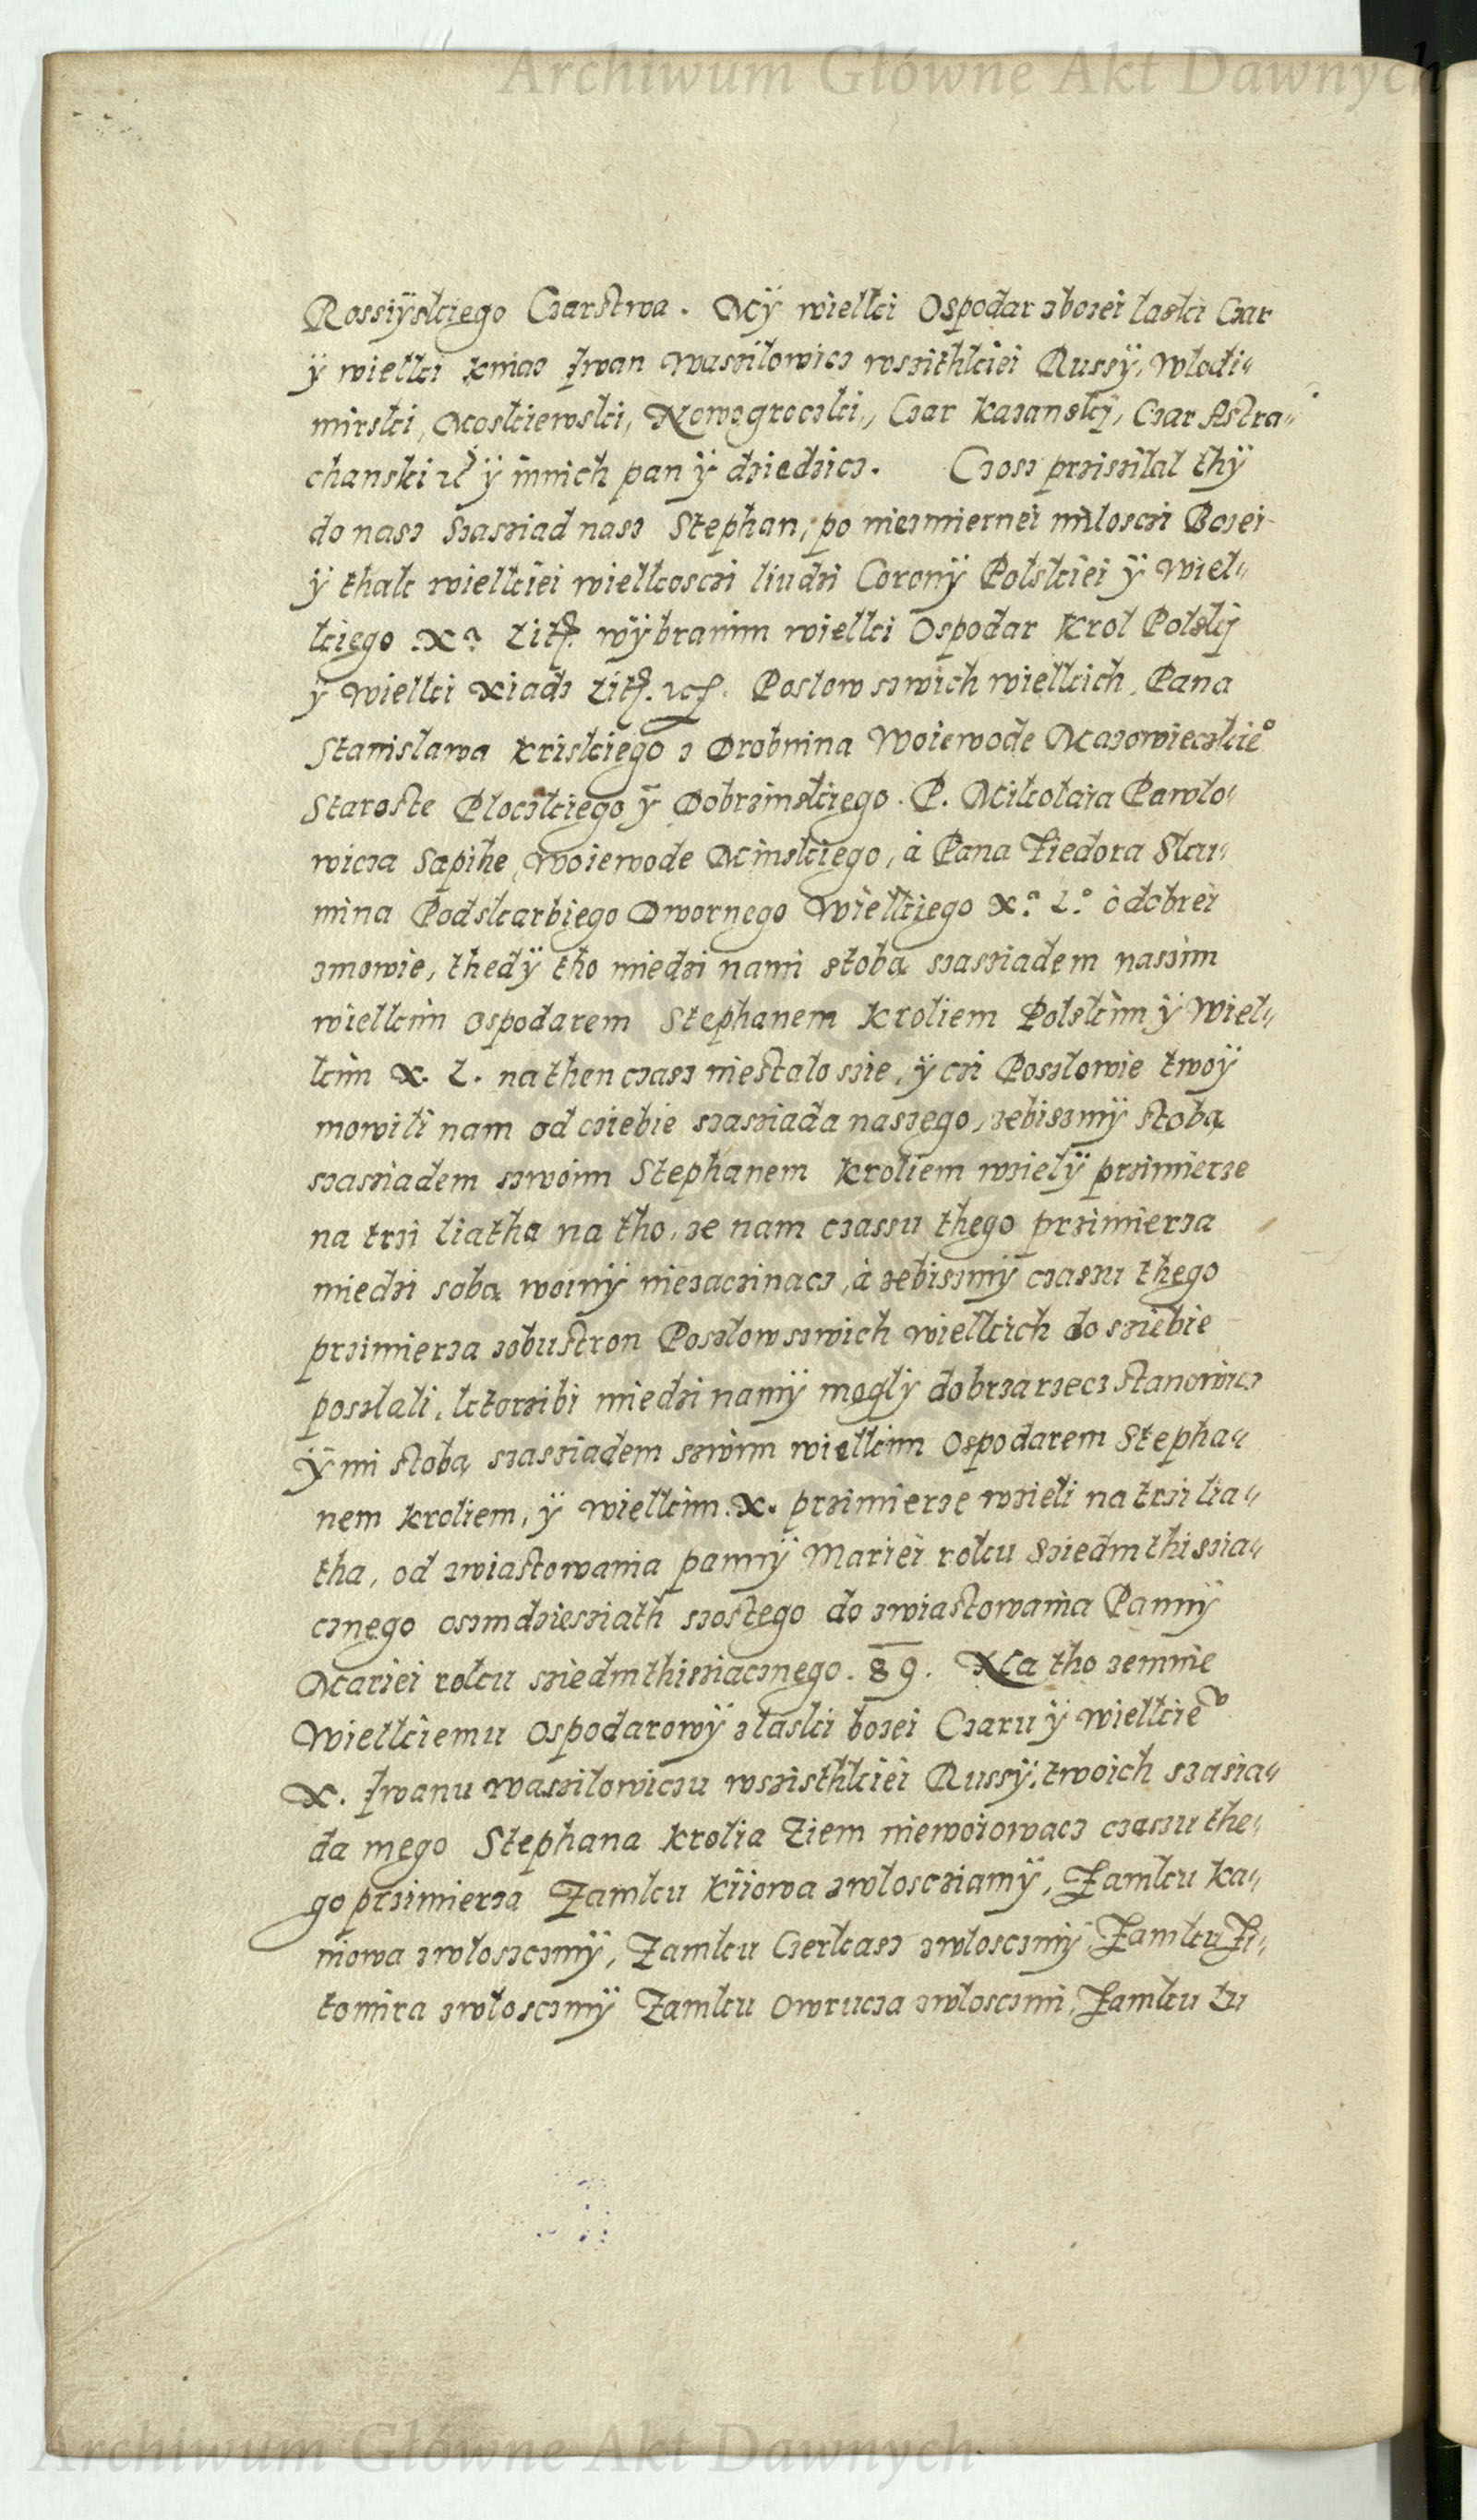 Archiwum Główne Akt Dawnych
Rossiÿskiego Czarstwa. Mÿ wielki Ospodar zbozei laski Czar
ÿ wielki kniaz Iwan Wassilowicz wszithkiei Russÿ, Wlodi„
mirski, Moskiewski, Nowogroczki,, Czar kazanskÿ, Czar Astra„
chanski etc ÿ innich pan ÿ dziedzicz. Czosz prziszilal thÿ
do nasz szasziad nasz Stephan, po niezmiernei miloschi Bozei
ÿ thak wielkiei wielkosczi liudzi Coronÿ Polskiei ÿ Wiel„
kiego X? Lith. wÿbranim wielki Ospodar Krol Polskÿ
ÿ Wielki Xiadz Lith. etc. Poslow szwich wielkich, Pana
Stanislawa Kriskiego z Drobnina Woiewode Mazowieczkie°
Staroste Ploczkiego ÿ Dobrzinskiego. P. Mikolaia Pawlo„
wicza Sapihe, Woiewode Minskiego, à Pana Fiedora Sku„
mina Podskarbiego Dwornego Wielkiego X.° L.° ò dobrei
zmowie, thedÿ tho miedzi nami stobą szasziadem naszim
wielkim Ospodarem Stephanem Kroliem Polskim ÿ Wiel„
kim X. L. na then czasz niestalo szie, ÿ czi Poszlowie twoÿ
mowili nam od cziebie szasziada naszego, zebiszmÿ stobą
szasziadem szwoim Stephanem Kroliem wzielÿ przimierze
na trzi liatha na tho, ze nam czassu thego przimierza
miedzi sobą woinÿ niezaczinacz, à zebiszmÿ czaszu thego
przimierza zobustron Poszlow szwich wielkich do sziebie
poszlali, ktorzibi miedzi namÿ moglÿ dobrza rzecz stanowicz
ÿ mi stobą szasziadem szwim wielkim Ospodarem Stepha„
nem Kroliem, ÿ wielkim X. przimierze wzieli na trzi lia„
tha, od zwiastowania pannÿ Mariei roku Sziedmthiszia„
cznego oszmdziesziath szostego do zwiastowania Pannÿ
Mariei roku sziedmthisziacznego. 89. Na tho zemnie
Wielkiemu Ospodarowÿ zlaski bozei Czaru ÿ wielkie^v
X. Iwanu Waszilowiczu wszisthkiei Russÿ, twoich szasia„
da mego Stephana Krolia Ziem niewoiowacz czaszu the„
go przimierza Zamku Kiiowa zwlosciziamÿ, Zamku Ka„
niowa zwloszczmÿ, Zamku Czerkasz zwlosczmÿ Zamku Zi„
tomira zwlosczmÿ Zamku Owrucza zwlosczmi, Zamku Lu
Archiwum Główne Akt Dawnych